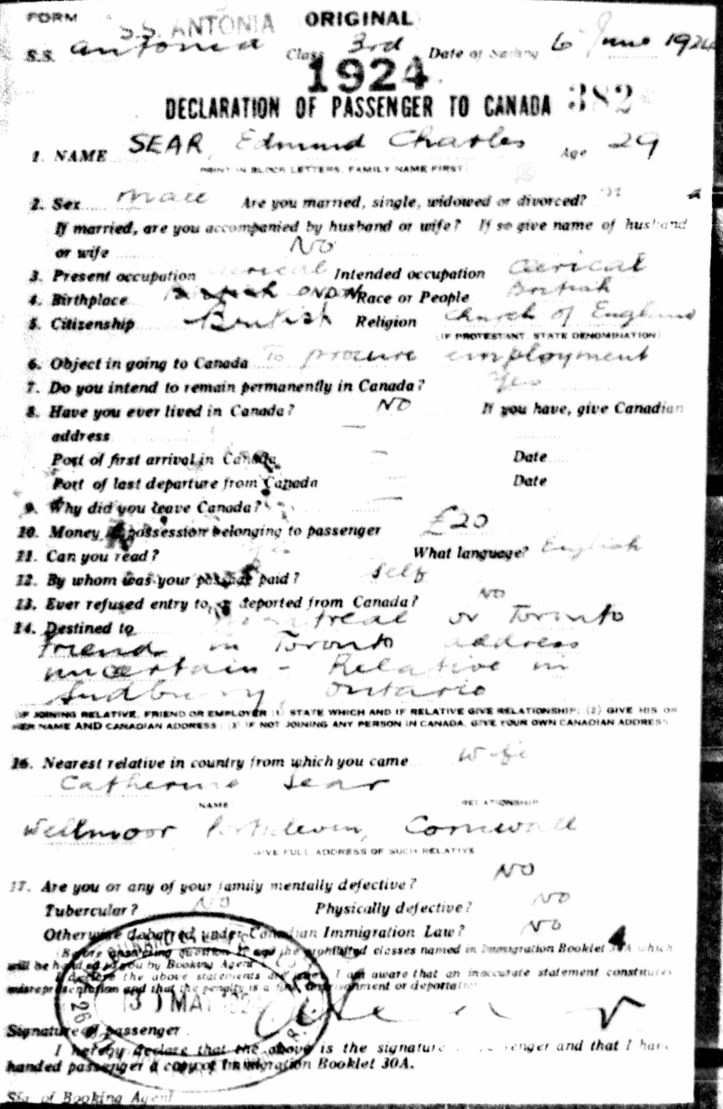 FORM S.S. ANTONIA ORIGINAL
S.S. Antonia Class 3rd Date of Sailing 6 June 1924
1924
DECLARATION OF PASSENGER TO CANADA 382
1. NAME SEAR, Edmund Charles Age 29
PRINT IN BLOCK LETTERS, FAMILY NAME FIRST
2. Sex male Are you married, single, widowed or divorced? m
If married, are you accompanied by husband or wife? If so give name of husband
or wife No
3. Present occupation clerical Intended occupation Clerical
4. Birthplace LONDON Race or People British
5. Citizenship British Religion Church of England
(IF PROTESTANT, STATE DENOMINATION)
6. Object in going to Canada To procure employment
7. Do you intend to remain permanently in Canada? Yes
8. Have you ever lived in Canada? NO If you have, give Canadian
address —
Port of first arrival in Canada — Date
Port of last departure from Canada — Date
9. Why did you leave Canada? —
10. Money in possession belonging to passenger £20
11. Can you read? What language? English
12. By whom was your passage paid? Self
13. Ever refused entry to, or deported from Canada? NO
14. Destined to Montreal or Toronto
friend in Toronto address
uncertain - Relative in
Sudbury Ontario
(IF JOINING RELATIVE, FRIEND OR EMPLOYER (1) STATE WHICH AND IF RELATIVE GIVE RELATIONSHIP; (2) GIVE HIS OR
HER NAME AND CANADIAN ADDRESS; (3) IF NOT JOINING ANY PERSON IN CANADA, GIVE YOUR OWN CANADIAN ADDRESS
16. Nearest relative in country from which you came wife
Catherine Sear
NAME RELATIONSHIP
Wellmoor Porthleven, Cornwall
GIVE FULL ADDRESS OF SUCH RELATIVE
17. Are you or any of your family mentally defective? NO
Tubercular? NO Physically defective? NO
Otherwise debarred under Canadian Immigration Law? NO
Before answering question 17 read the prohibited classes named in Immigration Booklet 30A which
will be handed to you by Booking Agent
above statements are I am aware that an inaccurate statement constitutes
misrepresentation and that the penalty is a fine imprisonment or deportation
30 MAY 192
Signature of passenger
I hereby declare that the above is the signature passenger and that I have
handed passenger a copy of Immigration Booklet 30A.
Sig. of Booking Agent